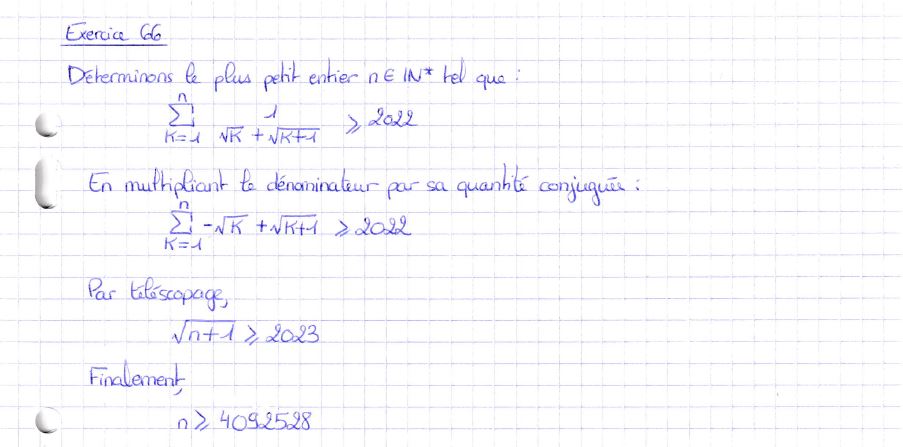 Exercice 66
Déterminons le plus petit entier n ∈ ℕ* tel que :
∑_{K=1}^{n} 1/(√K + √(K+1)) ⩾ 2022
En multipliant le dénominateur par sa quantité conjuguée :
∑_{K=1}^{n} -√K + √(K+1) ⩾ 2022
Par téléscopage,
√(n+1) ⩾ 2023
Finalement,
n ⩾ 4092528